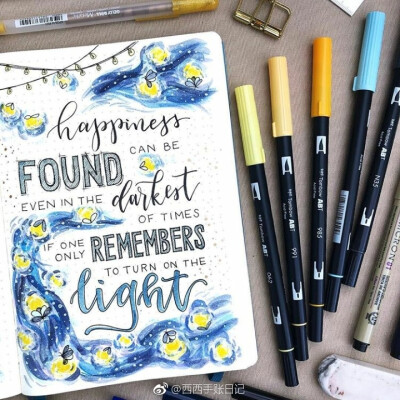 happiness
CAN BE
FOUND
EVEN IN THE
darkest
OF TIMES
IF ONE
ONLY
REMEMBERS
TO TURN ON THE
light
ABT
991
ABT
985
ABT
062
N15
@西西手账日记